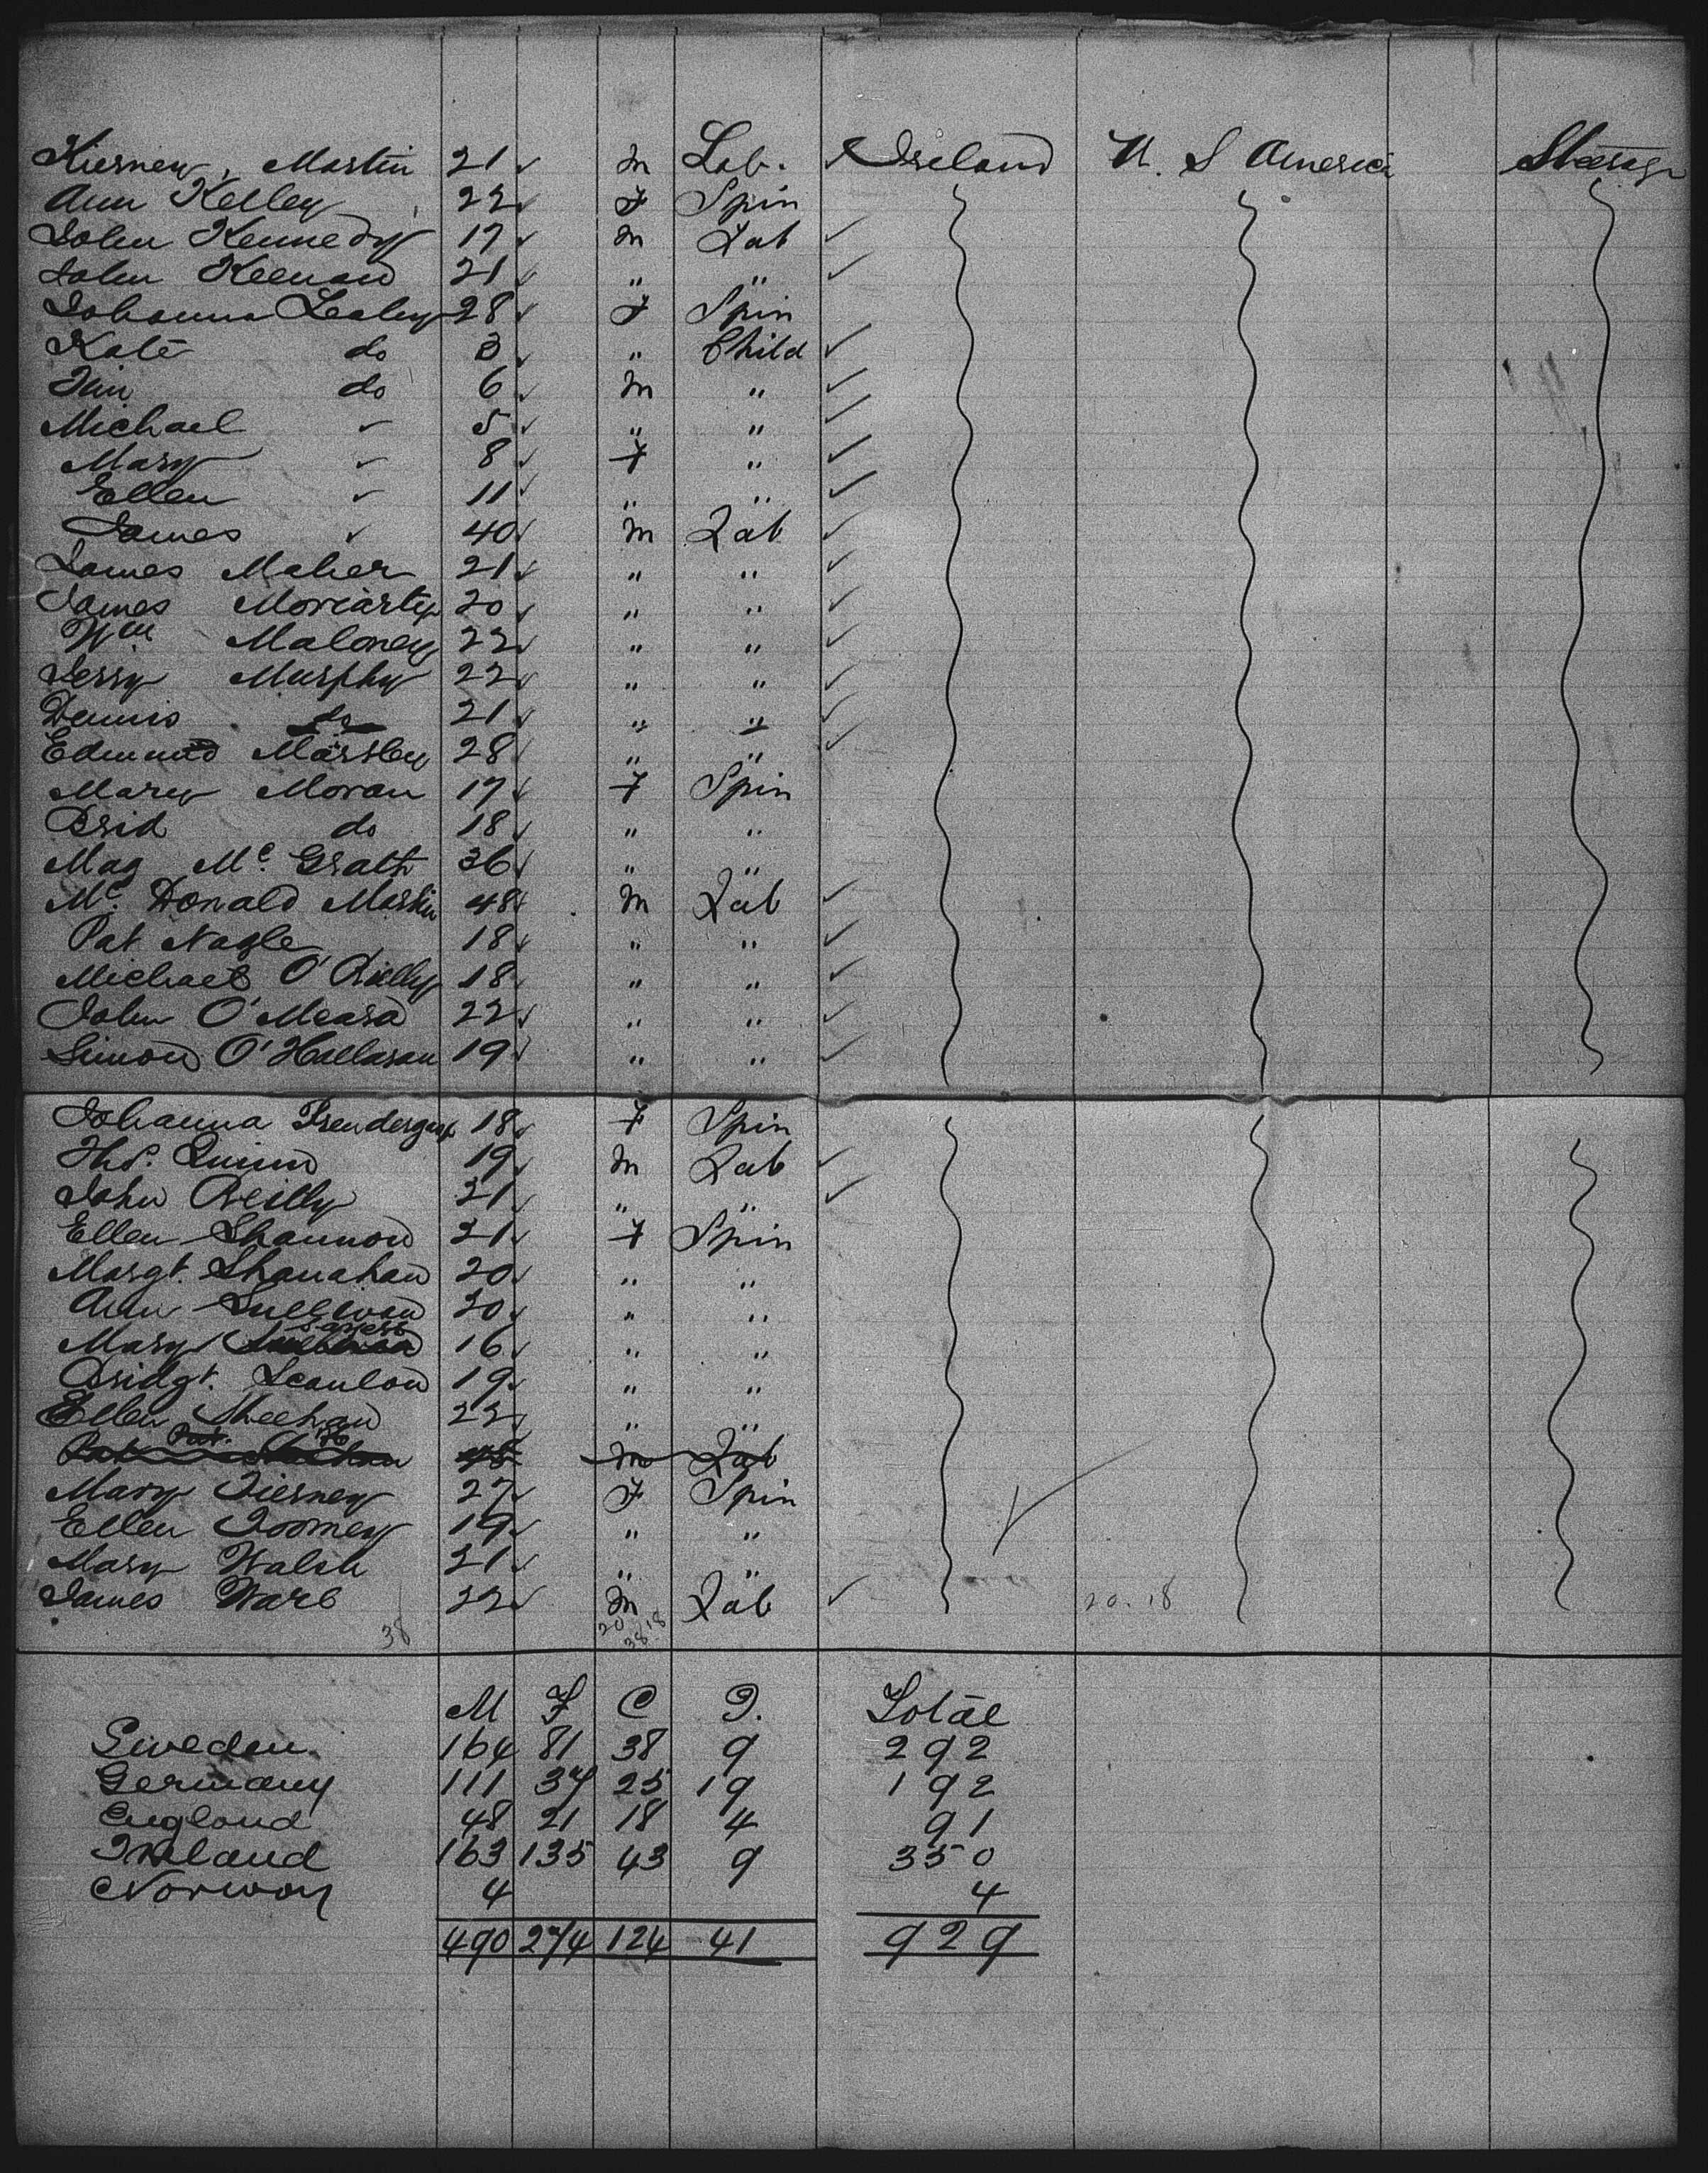 Kierney, Martin 21 m Lab. Ireland U. S America Steerage
Ann Kelley 22 F Spin
John Kennedy 17 m Lab
John Keenan 21 " "
Johanna Leahy 28 F Spin
Kate do 3 " Child
Jim do 6 m "
Michael 5 " "
Mary 8 F "
Ellen 11 " "
James 40 m Lab
James Maher 21 " "
James Moriarty 20 " "
Wm Maloney 22 " "
Jerry Murphy 22 " "
Dennis do 21 " "
Edmund 28 " "
Mary Moran 17 F Spin
Brid do 18 " "
Mag Mc. Grath 36 " "
Mc. Donald Martin 48 m Lab
Pat Nagle 18 " "
Michael O'Rielly 18 " "
John O'Meara 22 " "
Simon O'Hallaran 19 " "
Johanna Prendergast 18 F Spin
Thos. Quinn 19 m Lab
John Reilly 21 " "
Ellen Shannon 21 F Spin
Margt. Shanahan 20 " "
Ann Sullivan 20 " "
Mary 16 " "
Bridgt. Scanlon 19 " "
Ellen Sheehan 22 " "
Pat m Lab
Mary Tierney 27 F Spin
Ellen Toomey 19 " "
Mary Walsh 21 " "
James Ware 22 m Lab 20.18
38 20 18
38
M F C I. Total
Sweden. 164 81 38 9 292
Germany 111 37 25 19 192
England 48 21 18 4 91
Ireland 163 135 43 9 350
Norway 4 4
490 274 124 41 929